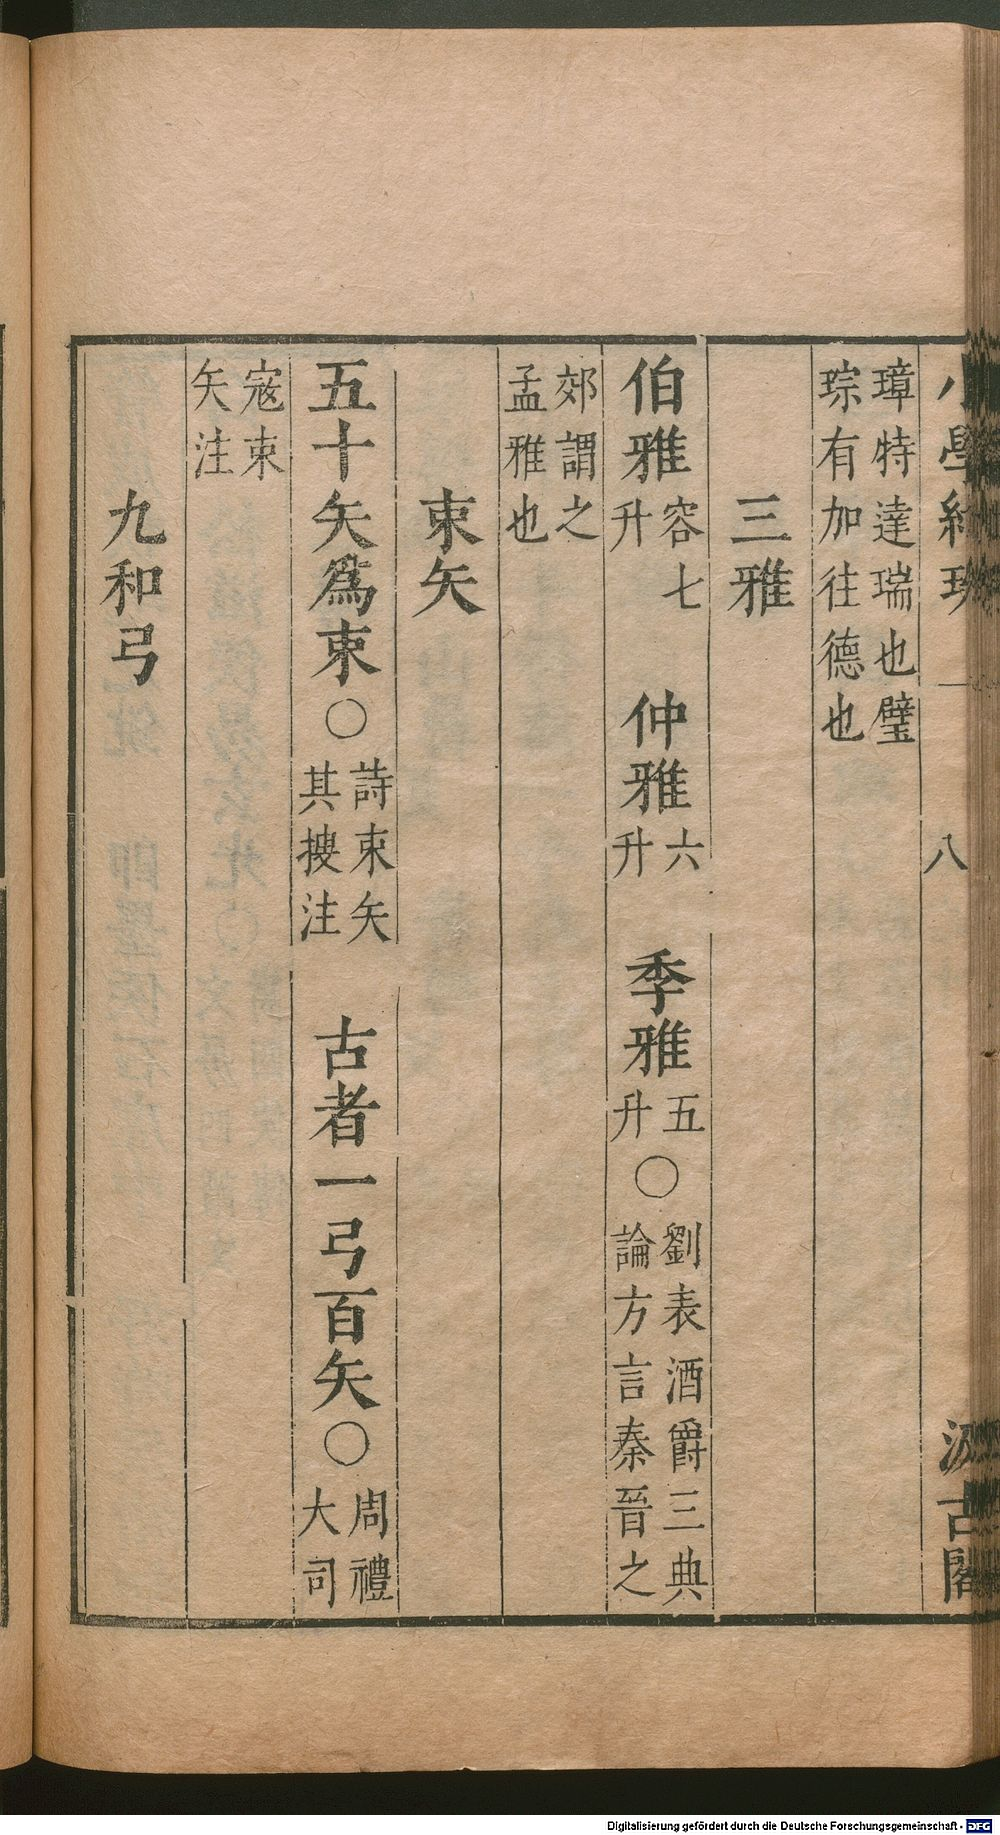 小學紺珠 八 汲古閣
璋特達瑞也璧
琮有加往德也
三雅
伯雅容七升 仲雅六升 季雅五升○劉表酒爵三典論方言秦晉之
郊謂之
孟雅也
束矢
五十矢爲束○詩束矢其搜注 古者一弓百矢○周禮大司
寇束
矢注
九和弓
Digitalisierung gefördert durch die Deutsche Forschungsgemeinschaft - DFG